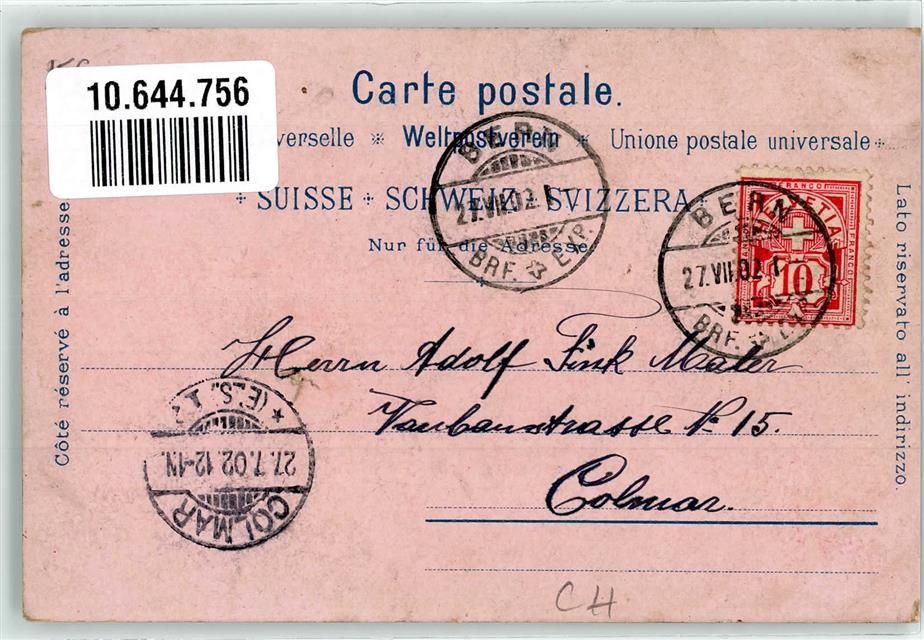 10.644.756
Carte postale.
verselle * Weltpostverein * Unione postale universale
SUISSE + SCHWEIZ + SVIZZERA
Nur für die Adresse.
Côté réservé à l'adresse
Lato riservato all' indirizzo.
BERN
27.VII.02. 1
BRF. EXP.
BERN
27.VII.02. 1
BRF.
FRANCO
HELVETIA
FRANCO
10
Herrn Adolf Fink Maler
Vaubanstrasse No 15.
Colmar.
COLMAR
27.7.02. 12-1N.
* (ELS.)
CH